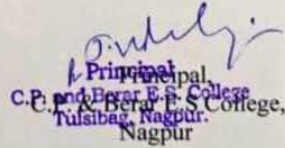 Principal
C.P. and Berar E.S. College
Tulsibag, Nagpur.
Principal,
C.P. & Berar E.S College,
Nagpur